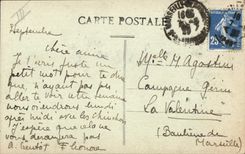 III
CARTE POSTALE
chère amie
Je t'écris juste un
petit mot pour te dire
que n'ayant pas pu
aller te voir cette semaine
nous viendrons lundi
après midi avec les
J'espère que cela ne
vous dérangera pas
a bientôt
Mlle M Agostini
Campagne
La Valentine
(Banlieue de
Marseille)
25